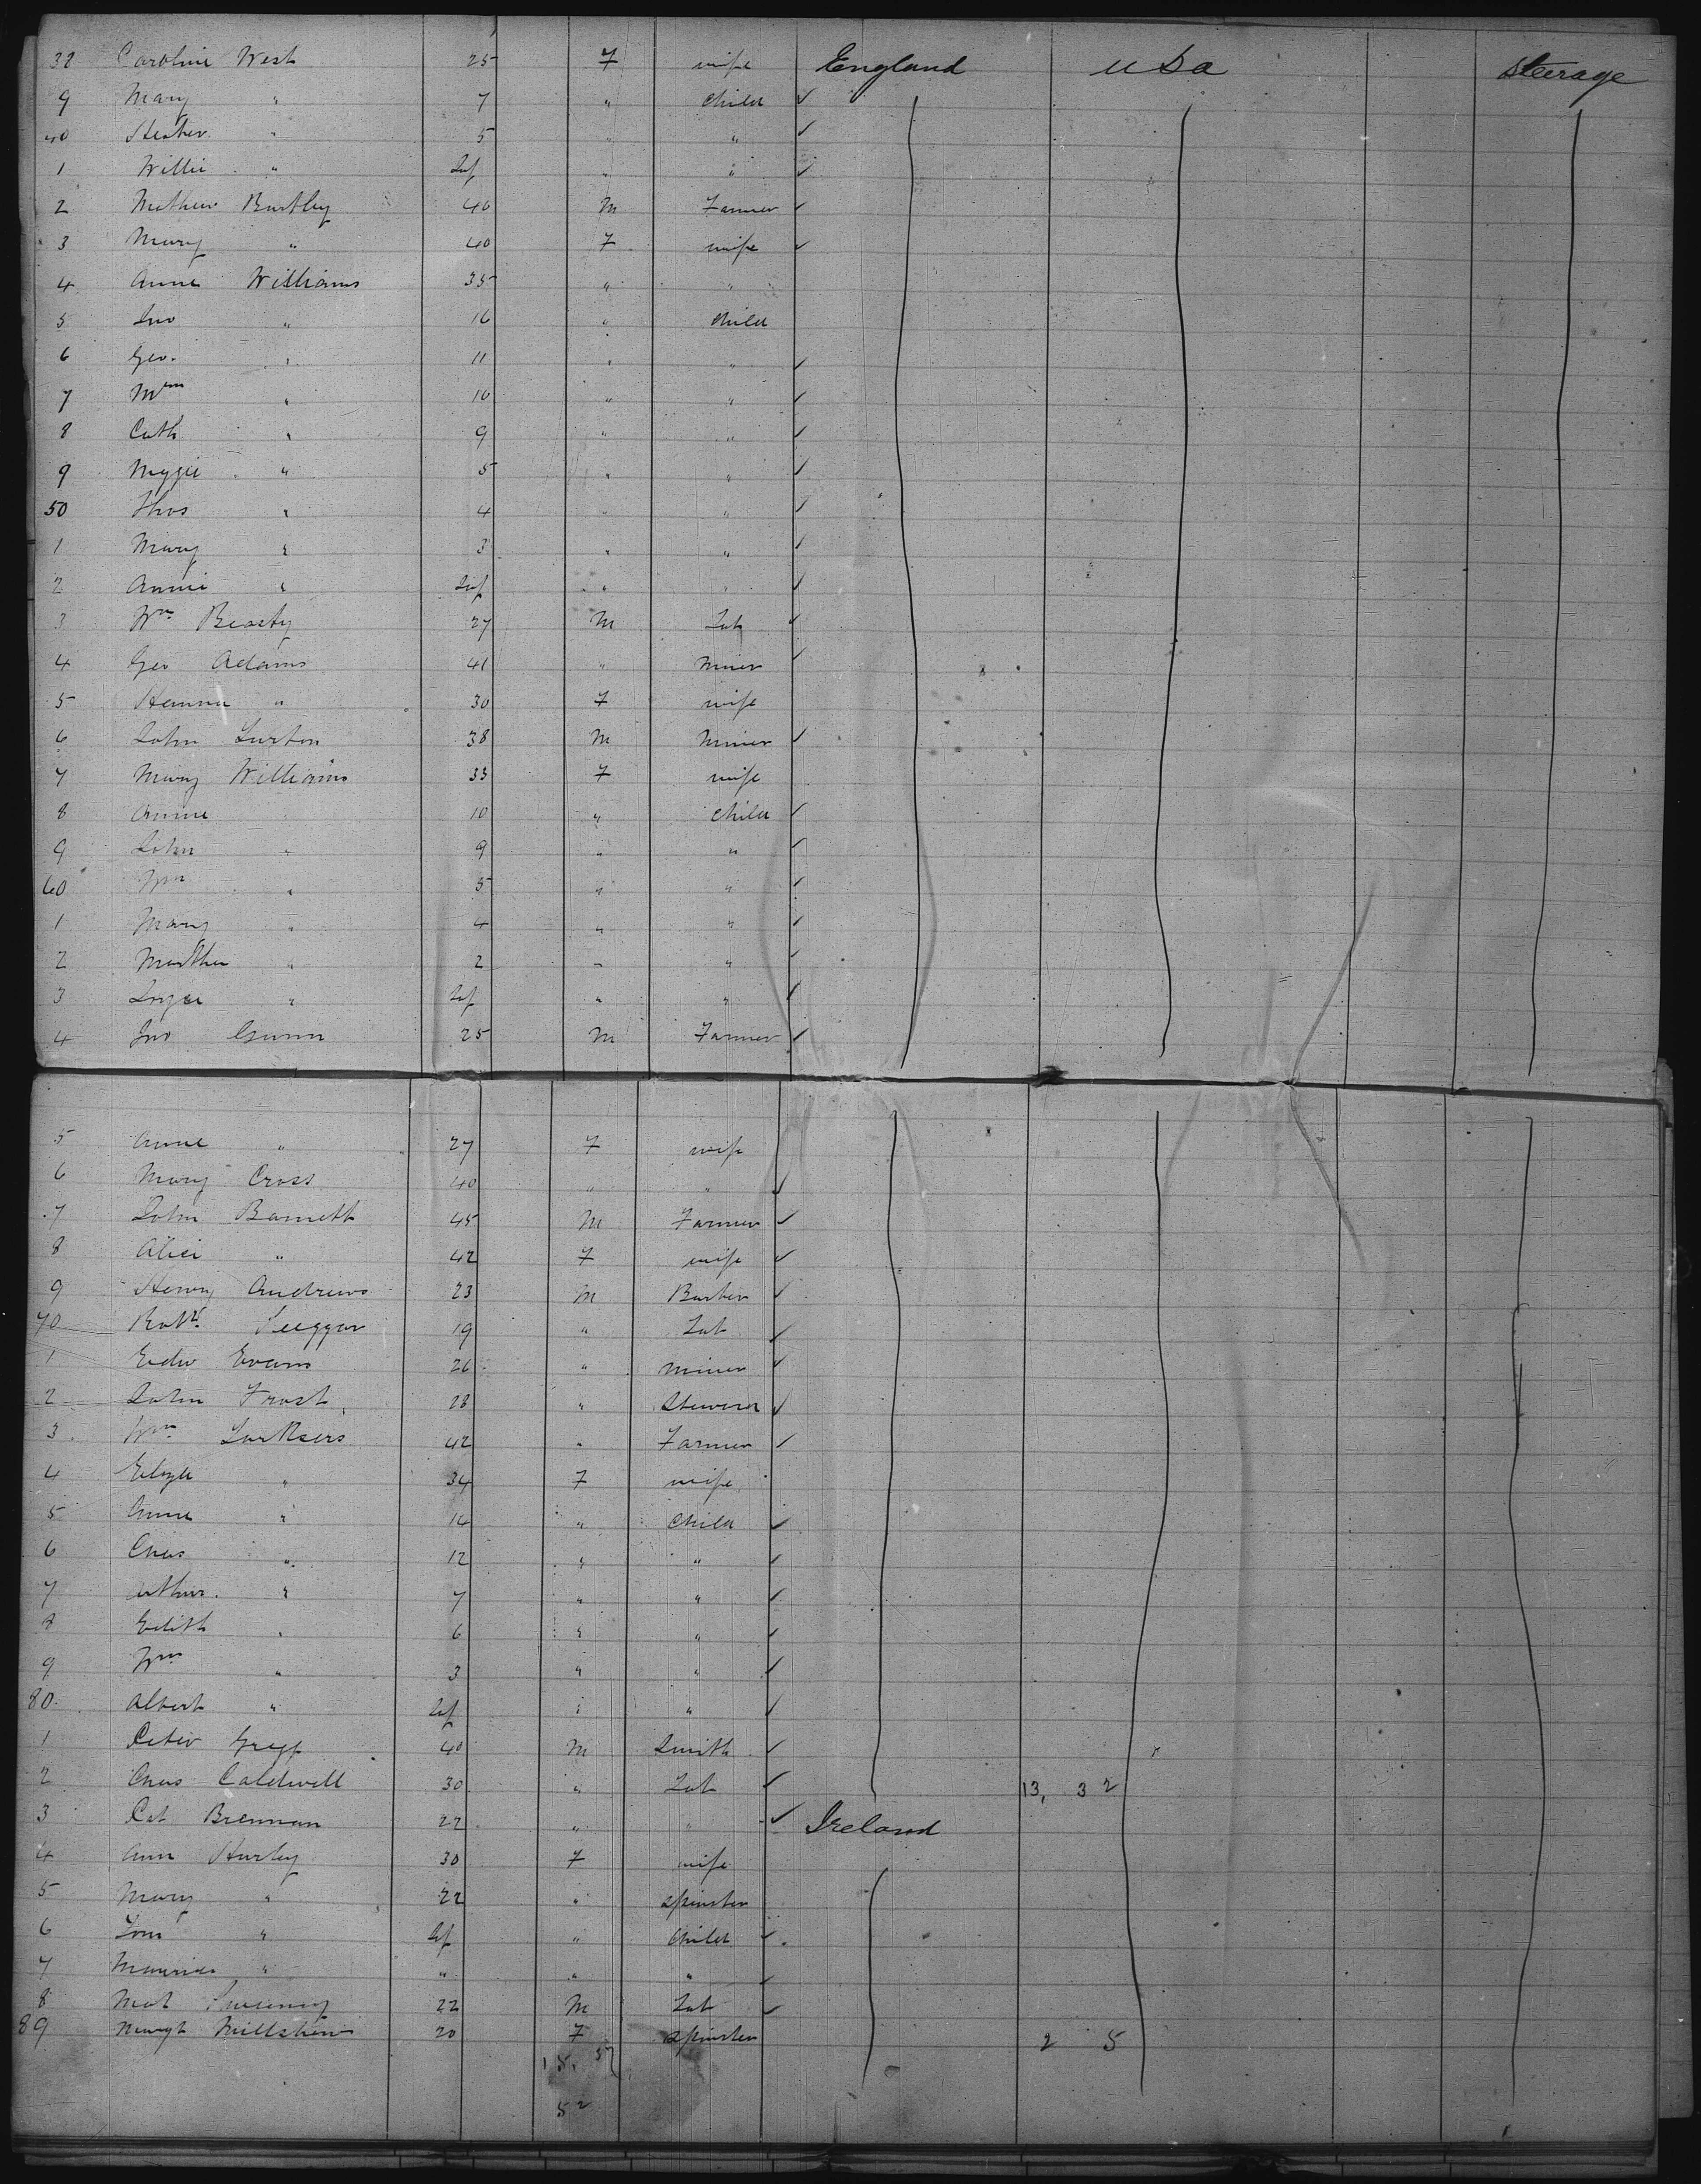 38 Caroline West 25 F wife England USA Steerage
9 Mary " 7 " child ✓
40 Hester " 5 " " ✓
1 Willie " Inf " " ✓
2 Mathew Burtley 46 M Farmer ✓
3 Mary " 40 F wife ✓
4 Anne Williams 35 " "
5 Jno " 16 " child
6 Geo. " 11 " " ✓
7 Wm " 10 " " ✓
8 Cath " 9 " " ✓
9 Maggie " 5 " " ✓
50 Thos " 4 " " ✓
1 Mary " 3 " " ✓
2 Annie " Inf " " ✓
3 Wm Beasty 27 M Lab ✓
4 Geo Adams 41 " Miner ✓
5 Hanna " 30 F wife
6 John Lurton 38 M Miner ✓
7 Mary Williams 33 F wife
8 Annie " 10 " child ✓
9 John " 9 " " ✓
60 Wm " 5 " " ✓
1 Mary " 4 " " ✓
2 Martha " 2 " " ✓
3 " Inf " " ✓
4 Jno Gunn 25 M Farmer ✓
5 Anne " 27 F wife
6 Mary Cross 40 " " ✓
7 John Barnett 45 M Farmer ✓
8 Alice " 42 F wife ✓
9 Henry Andrews 23 M Barber ✓
70 Robt Seeggar 19 " Lab ✓
1 Edw Evans 26 " Miner ✓
2 John Frost 28 " Steward ✓
3 Wm 42 " Farmer ✓
4 Eliza " 34 F wife
5 Anne " 14 " child ✓
6 Chas " 12 " " ✓
7 Arthur " 7 " " ✓
8 Edith " 6 " " ✓
9 Wm " 3 " " ✓
80 Albert " Inf " " ✓
1 Peter Gregg 40 M Smith ✓
2 Chas Caldwell 30 " Lab ✓ 13, 32
3 Pat Brennan 22 " " ✓ Ireland
4 Ann Hurley 30 F wife
5 Mary " 22 " spinster
6 Tom " Inf " child ✓
7 Maurice " " " " ✓
8 Mat Sweeney 22 M Lab ✓
89 Margt 20 F spinster 2 5
15. 57
52